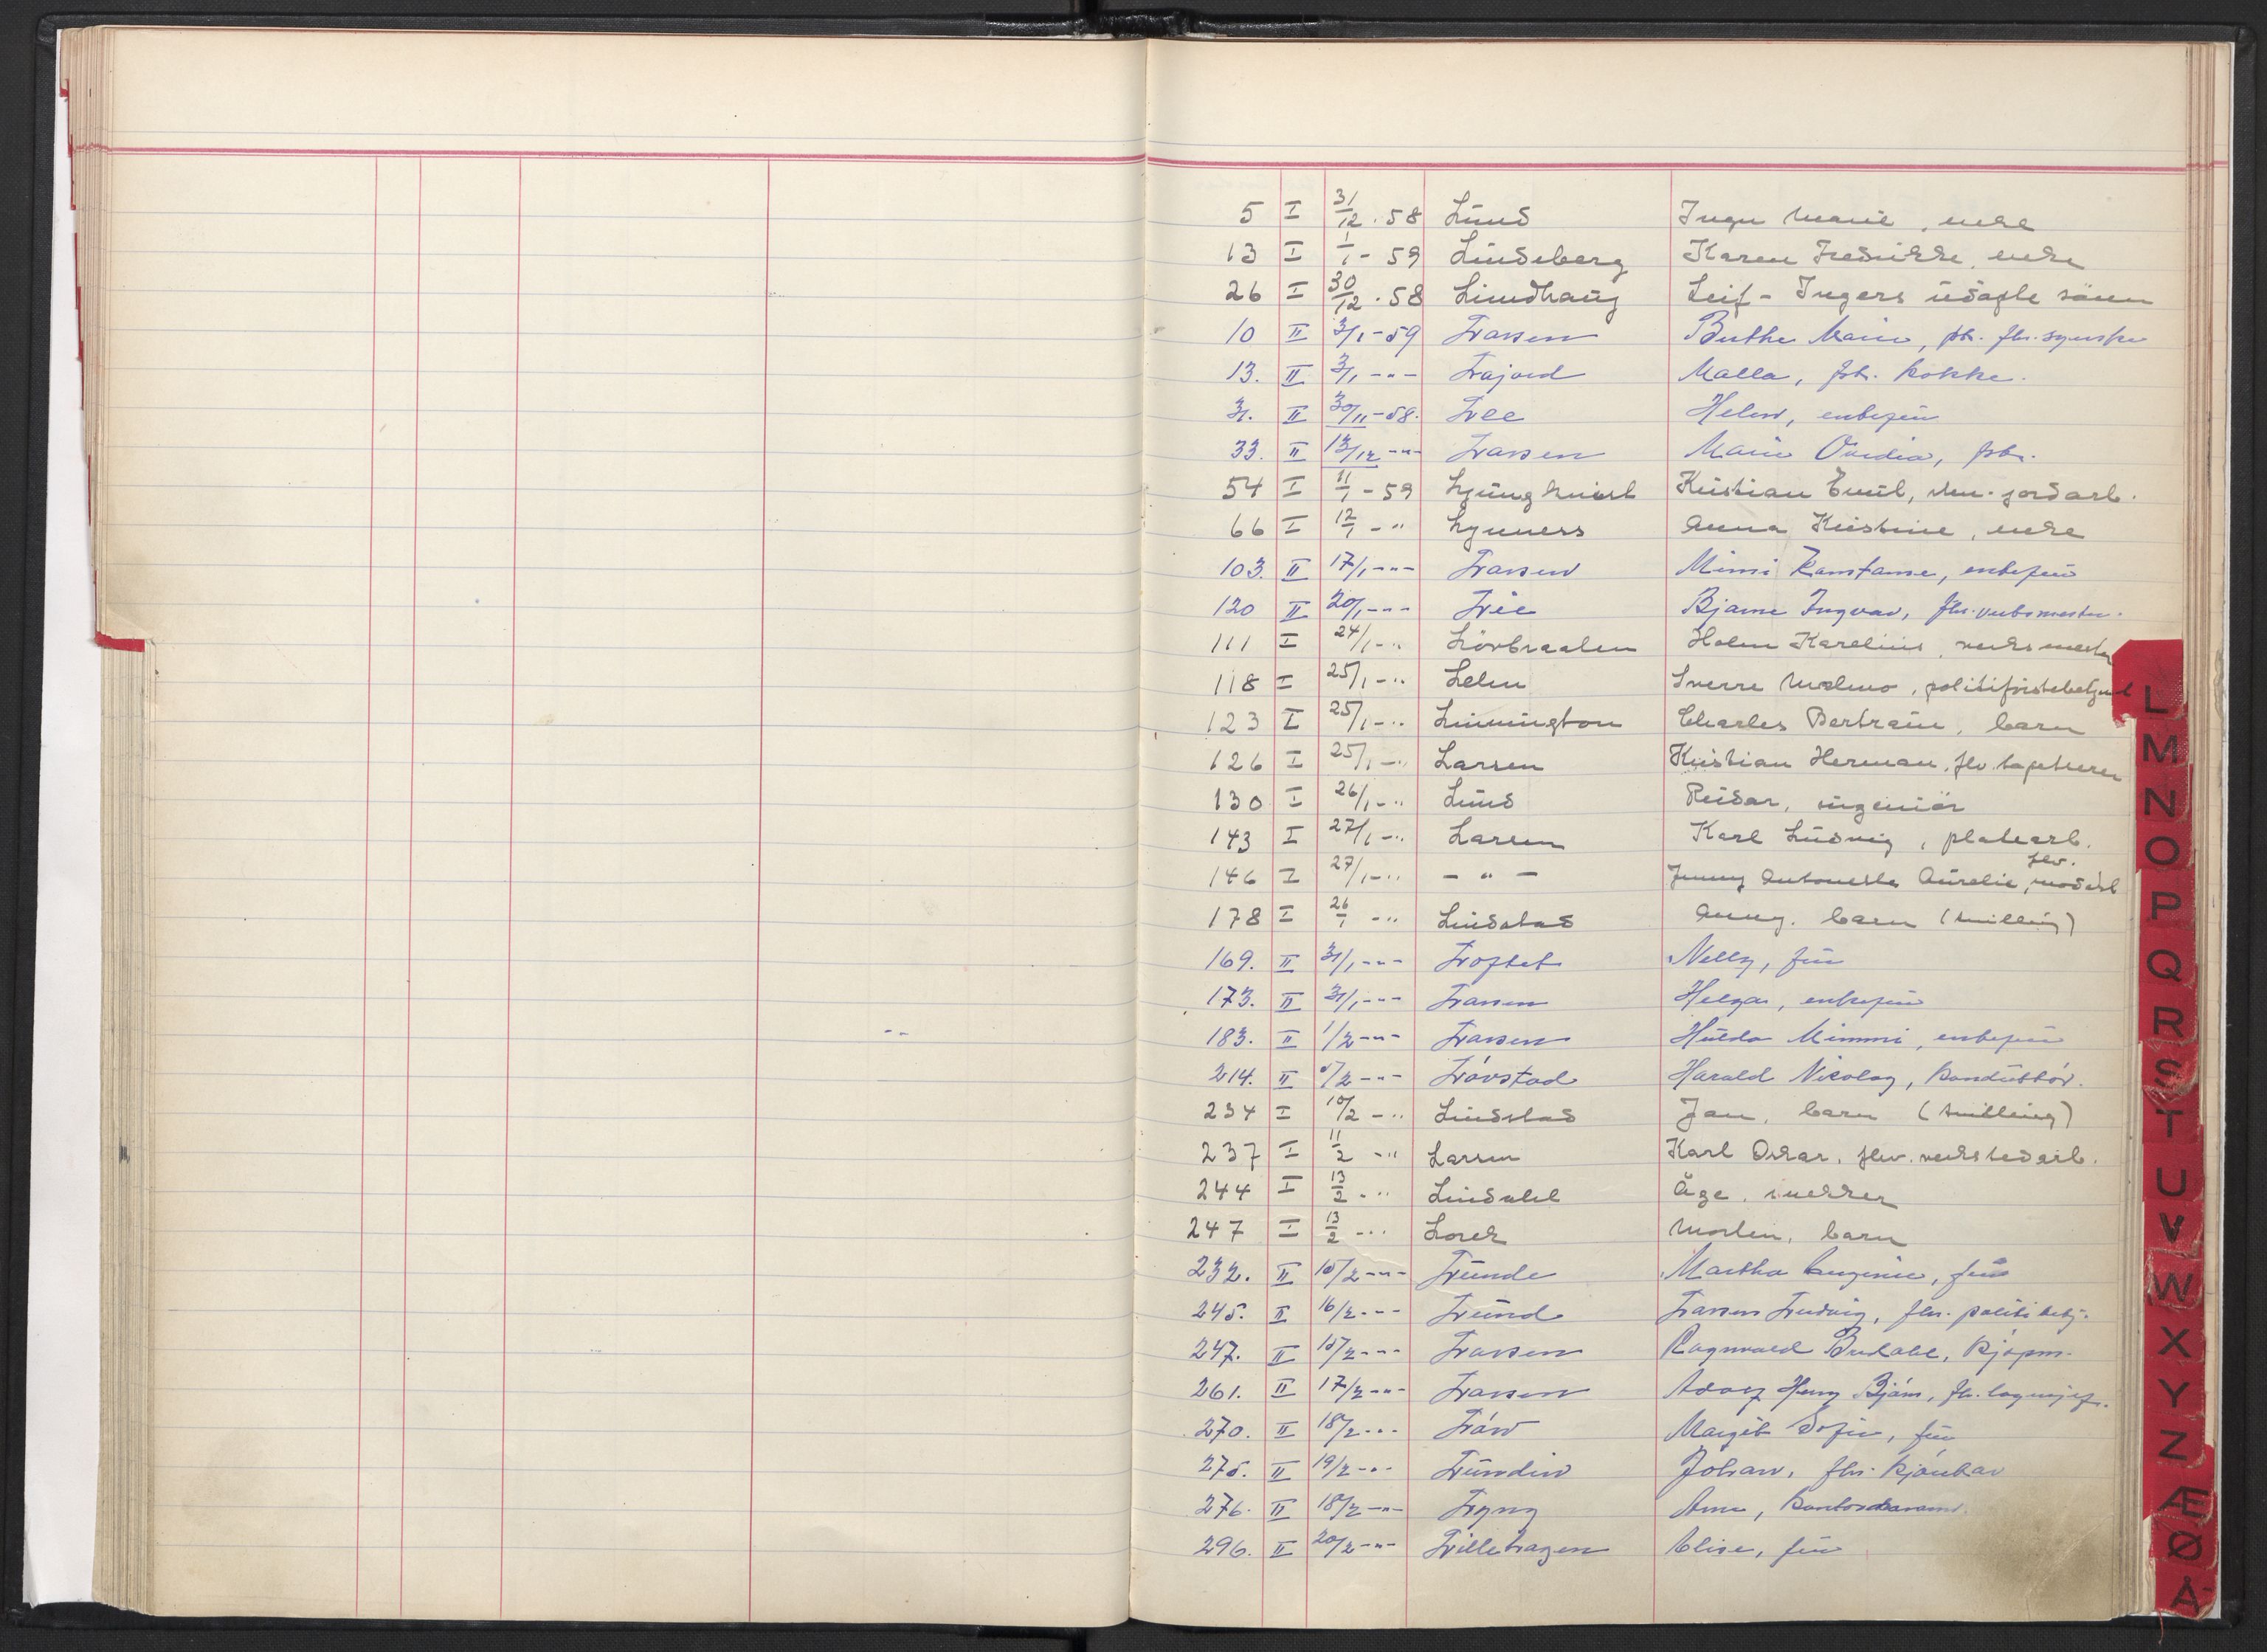 5 I 31/12 . 58 Lund Inga Marie, enke
13 I 1/1 - 59 Lindeberg Karen Fredrikke, enke
26 I 30/12 . 58 Lindhaug Leif - Ingers udøpte sønn
10 II 3/1 - 59 Larsen Berthe Marie, fhv. syerske
13. II 3/1 - " - Lajord Malla, frk. kokke.
31. II 30/11 - 58. Lee Helen, enkefru
33. II 13/12 - " - Larsen Marie Ovidia, frk.
54 I 11/1 - 59 Ljungkvist Kristian Emil, jordarb.
66 I 12/1 - " Lynness Anna Kristine, enke
103. II 17/1 - " - Larsen Mimi Konstanse, enkefru
120 II 20/1 - " - Lie Bjarne Ingvar, fhv. verksmester.
111 I 24/1 - " Lövbraaten Holm Karelius, verksmester
118 I 25/1 - " Lelm Sverre politiførstebetjent
123 I 25/1 - " Linnington Charles Bertram, barn
126 I 25/1 - " Larsen Kristian Herman, fhv. tapetserer
130 I 26/1 - " Lund Reidar, ingeniör
143 I 27/1 - " Larsen Karl Ludvig, platearb.
146 I 27/1 - " - " - Jenny Antonette Aurelie, fhv.
178 I 26/1 - " Lindstad Anny. barn (tvilling)
169. II 31/1 - " - Loftet Nelly, fru
173. II 31/1 - " - Larsen Helga, enkefru
183. II 1/2 - " - Larsen Hulda Mimmi, enkefru
214. II 5/2 - " - Lövstad Harald Nicolay, konduktör.
234 I 10/2 - " Lindstad Jan, barn (tvilling)
237 I 11/2 - " Larsen Karl Oskar, fhv. verkstedarb.
244 I 13/2 - " Lindahl Åge, snekker
247 I 13/2 - " Lorck Morten, barn
232. II 15/2 - " - Lunde Martha Eugenie, fru
245. II 16/2 - " - Lund Larsen Ludvig, fhv. politibetj.
247. II 15/2 - " - Larsen Ragnvald Bredahl, kjøpm.
261. II 17/2 - " - Larsen Adolf Henry Bjørn, fhv. lagersjef.
270. II 18/2 - " - Löw Margit Sofie, fru
275. II 19/2 - " - Lundin Johan, fhv.
276. II 18/2 - " - Lyng Arne,
296. II 20/2 - " - Lillehagen Elise, fru
L
M
N
O
P
Q
R
S
T
U
V
W
X
Y
Z
Æ
Ø
Å